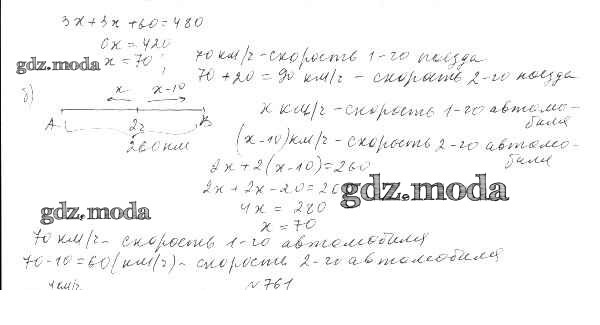 3x+3x+60=480
6x=420
x=70 ; 70 км/ч - скорость 1-го поезда
gdz.moda
70+20=90 км/ч - скорость 2-го поезда
б)
x x-10
x км/ч - скорость 1-го автомо-
биля
A 2ч B
260 км
(x-10) км/ч - скорость 2-го автомо-
биля
2x+2(x-10)=260
2x+2x-20=260
gdz.moda
4x=280
gdz.moda
x=70
70 км/ч - скорость 1-го автомобиля
70-10=60 (км/ч) - скорость 2-го автомобиля
№761